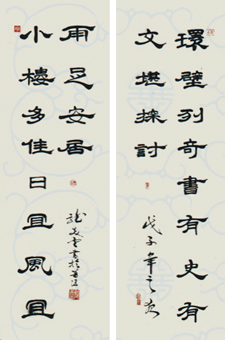 環壁列奇書有史有
文堪探討
戊子年之
小樓多佳日宜風宜
雨足安居